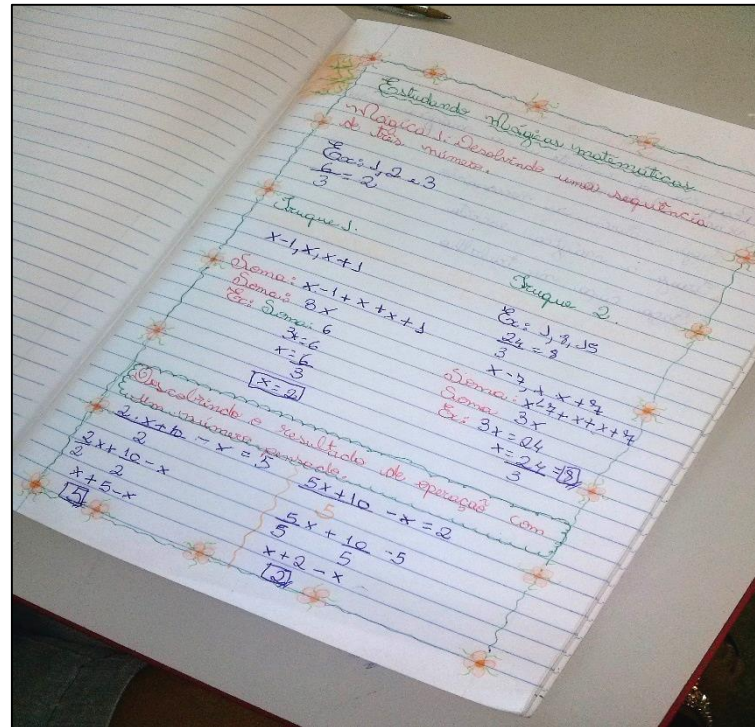 Estudando Mágicas matemáticas
Mágica 1: Desolvindo uma sequência
de três número.
Ex: 1, 2 e 3
6/3 = 2
Truque 1.
x-1, x, x+1
Soma: x-1+x+x+1
Soma: 3x
Ex: Soma: 6
3x=6
x=6/3
x=2
Truque 2.
Ex: 1, 8, 15
24/3 = 8
x-7, x, x+7
Soma: x-7+x+x+7
Soma 3x
Ex: 3x=24
x=24/3=8
Descobrindo o resultado de operação com
um número pensado.
2·x+10/2 - x = 5
2x/2 + 10/2 - x
x+5-x
5
5x+10/5 - x = 2
5x/5 + 10/5 -5
x+2-x
2